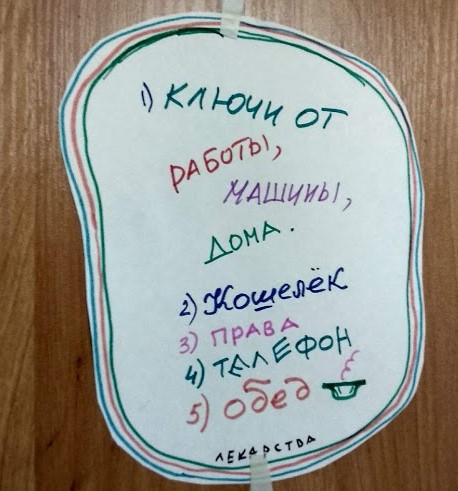 1) Ключи от
работы,
машины,
дома.
2) Кошелёк
3) права
4) телефон
5) обед
лекарства